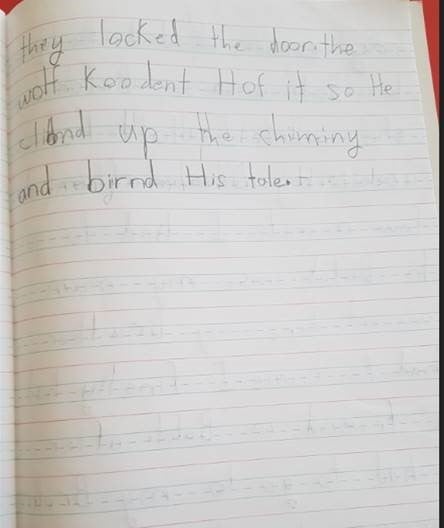 they locked the door.the
wolf Koodent Hof it so He
clibnd up the chiminy
and birnd His tole.